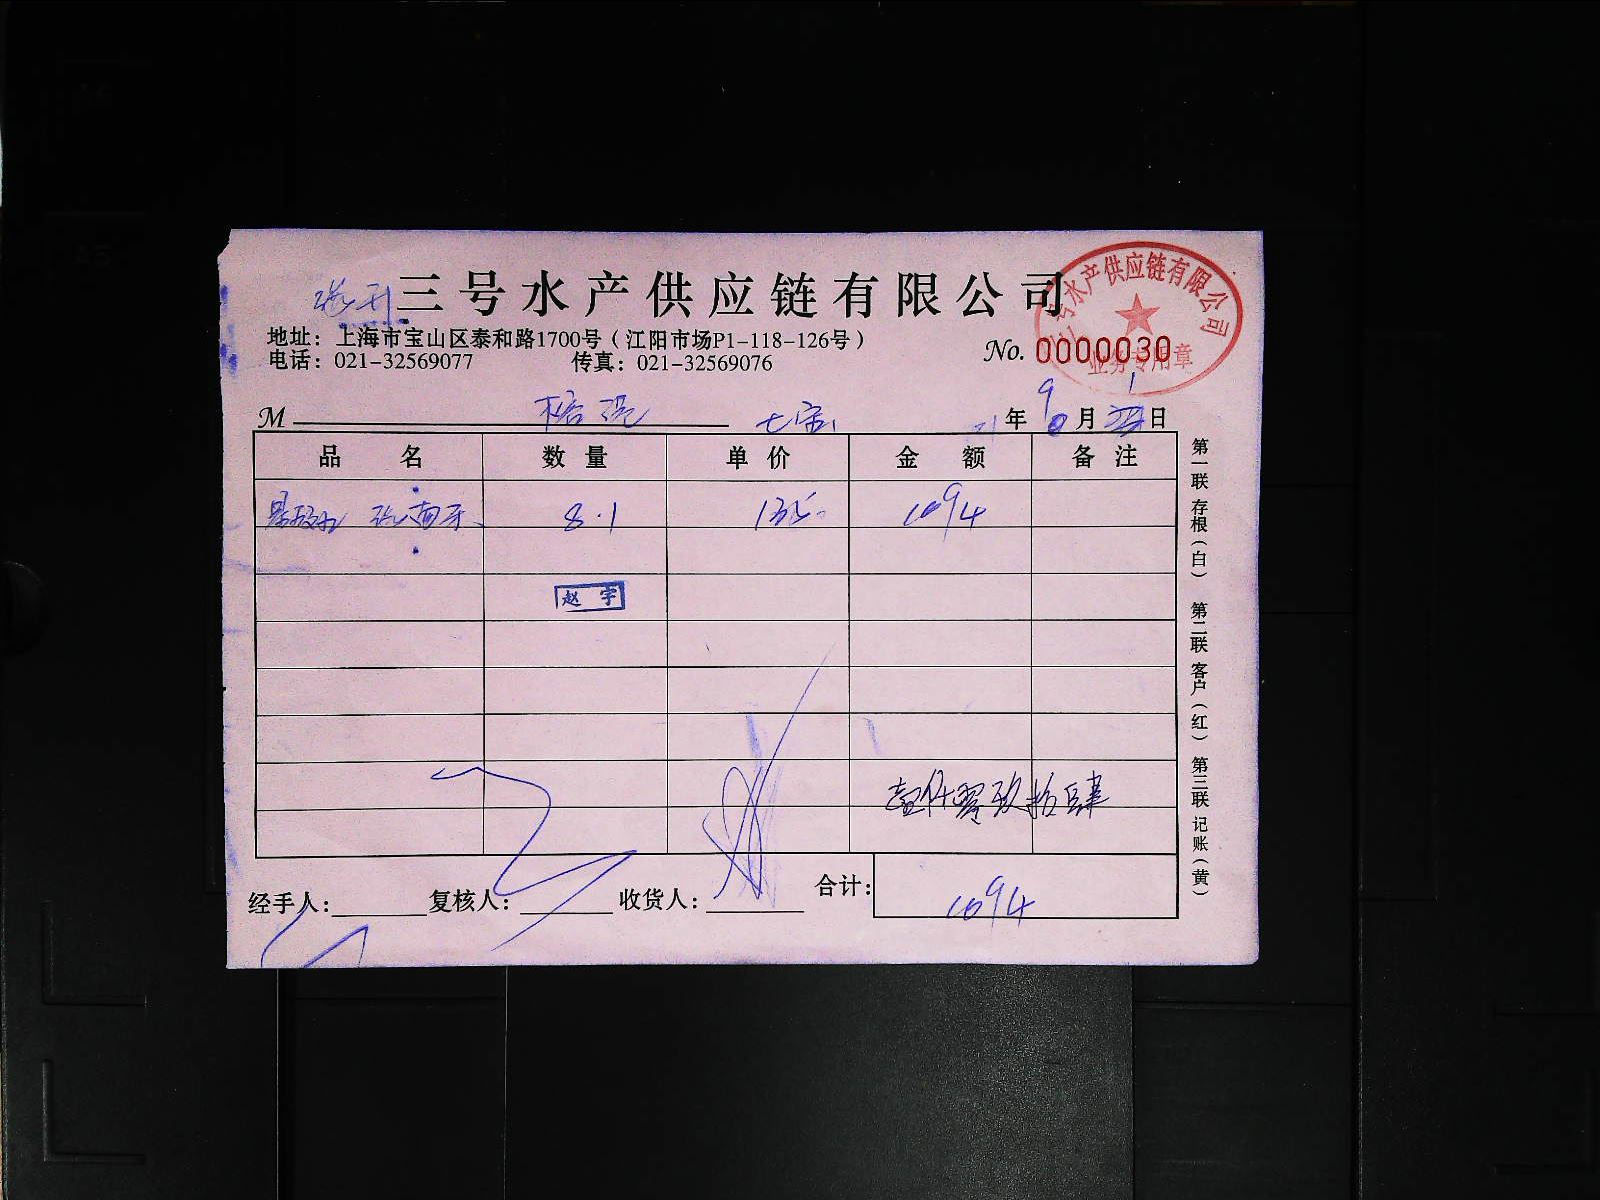 三号水产供应链有限公司
三号水产供应链有限公司
业务专用章
地址：上海市宝山区泰和路1700号（江阳市场P1-118-126号）
电话：021-32569077 传真：021-32569076
No. 0000030
M 年 9 月 1 日
品名 数量 单价 金额 备注
8.1 135 1094
赵宇
壹仟零玖拾肆
合计： 1094
经手人： 复核人： 收货人：
第一联 存根（白） 第二联 客户（红） 第三联 记账（黄）